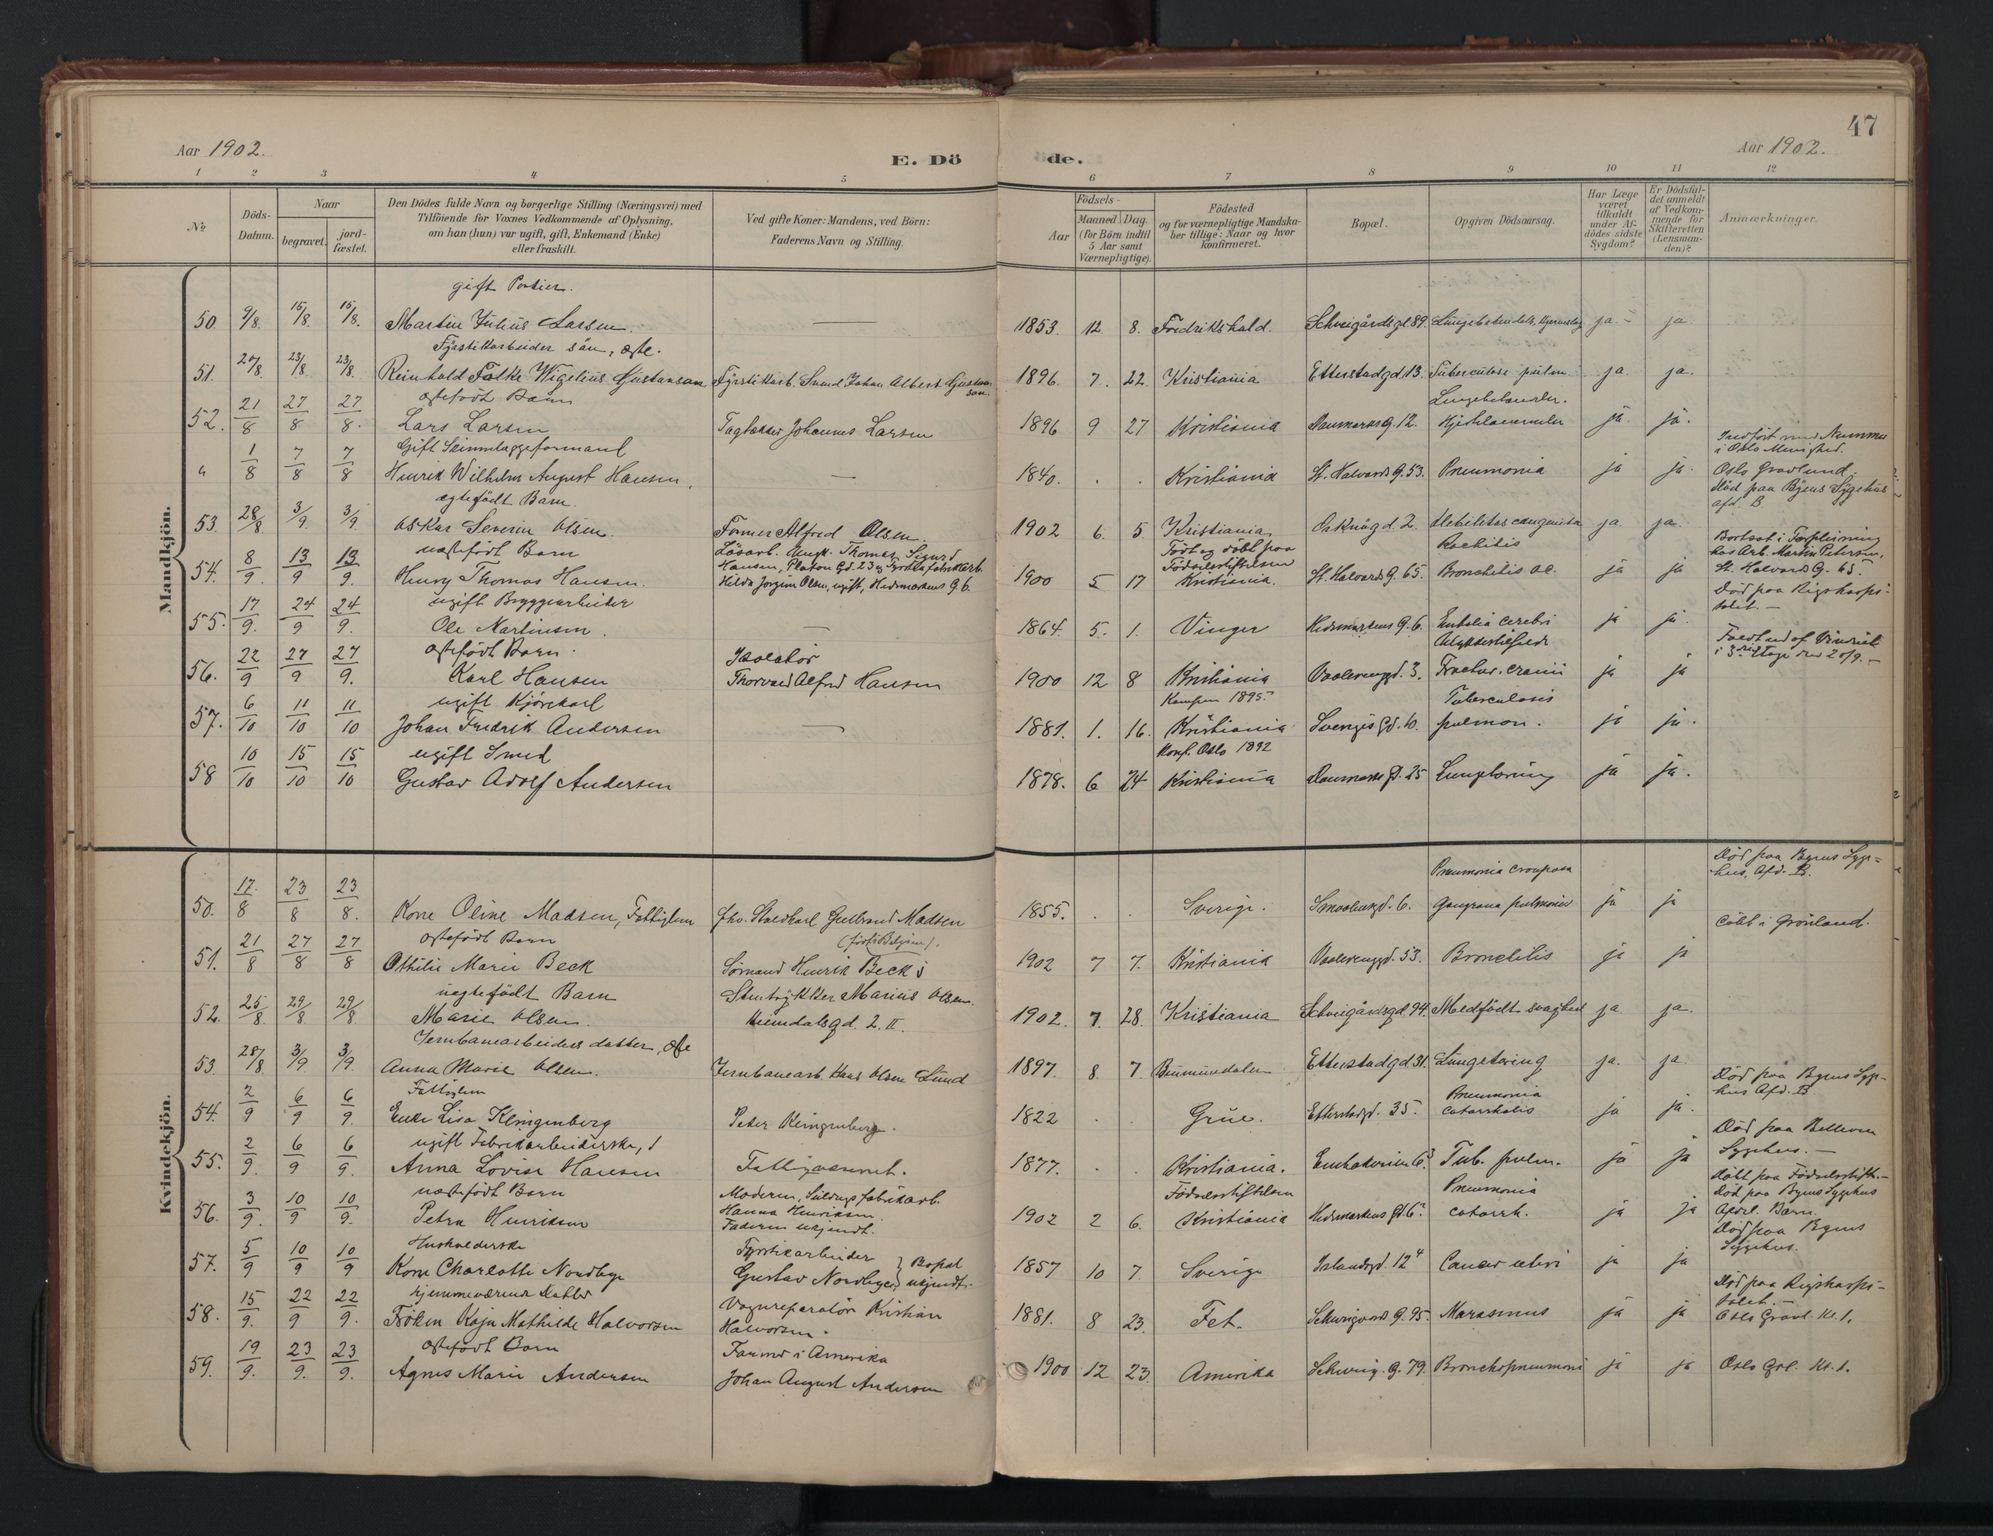 47
Aar 1902.
E. Döde.
Aar 1902.
1 2 3 4 5 6 7 8 9 10 11 12
Nr.
Döds-Datum.
Naar
begravet.
jord-fæstet.
Den Dödes fulde Navn og borgerlige Stilling (Næringsvei) med
Tilföiende for Voxnes Vedkommende af Oplysning,
om han (hun) var ugift, gift, Enkemand (Enke)
eller fraskilt.
Ved gifte Koner: Mandens, ved Börn:
Faderens Navn og Stilling.
Födsels-
Aar
Maaned. Dag.
(for Börn indtil
5 Aar samt
Værnepligtige).
Födested
og for værnepligtige Mandska-
ber tillige: Naar og hvor
konfirmeret.
Bopæl.
Opgiven Dödsaarsag.
Har Læge
været
tilkaldt
under Af-
dödes sidste
Sygdom?
Er Dödsfal-
det anmeldt
af Vedkom-
mende for
Skifteretten
(Lensman-
den)?
Anmærkninger.
Mandkjön.
gift Portier.
50. 9/8. 15/8. 15/8. Martin Julius Larsen. — 1853. 12. 8. Fredrikshald. Schweigårdsgd 89. ja. ja.
Fyrstikarbeider sön, ægte.
51. 20/8. 23/8. 23/8. Reinhold Falke Wigelius Gustavson Fyrstikarb. Svend Johan Albert Gustavson. 1896. 7. 22. Kristiania Etterstadgd 13. Tuberculose pulm. ja. ja.
ægtefödt Barn
52. 21/8 27/8 27/8. Lars Larsen Tagtækker Johannes Larsen 1896 9 27 Kristiania Danmarks G. 12. ja. ja.
Gift
a 1/8 7/8 7/8 Henrik Wilhelm August Hansen. — 1840. . . Kristiania St. Halvards G. 53. Pneumonia ja ja.
Indfört med Nummer
i Oslo Menighed.
Oslo Gravlund.
Död paa Byens Sygehus
afd. B
ægtefödt Barn.
53. 28/8 3/9. 3/9. Oskar Severin Olsen. Former Alfred Olsen. 1902 6. 5. Kristiania d. 2. ja ja.
uægtefödt Barn
54. 8/9. 13/9 13/9. Henry Thomas Hansen. Lösarb. Ungk. Thomas Sigurd
Hansen, Platou Gd. 23
Hilda Jorgine Olsen, ugift, Hedmarkens G. 6
1900 5 17 Födt og döbt paa Födselsstiftelsen Kristiania. St. Halvards G. 65. Bronchitis ac. ja ja
Bortsat i Forpleining
hos Arb. Martin Petersen,
St. Halvards G. 65.
ugift Bryggearbeider
55. 17/9. 24/9 24/9. Ole Martinsen. — 1864. 5. 1. Vinger Hedemarkens G. 6. Embolia cerebri ja ja.
Död paa Rigshospi-
talet. —
ægtefödt Barn.
56. 22/9 27/9 27/9. Karl Hansen
Thorvald Alfred Hansen 1900 12 8 Kristiania Vaalerenggd. 3. Ulykkestilfælde Fractur. cranii ja ja
Faldt ud af Vindu
i 3die Etage den 20/9. —
ugift Kjörekarl
57. 6/10 11/10 11/10 Johan Fredrik Andersen — 1881. 1. 16. Kampen 1895 Kristiania Svenges Gd. 10. Tuberculosis pulmon. ja ja.
ugift Smed
58 10/10 15/10 15/10 Gustav Adolf Andersen 1878. 6 24 Konf. Oslo 1892 Kristiania Danmarks Gd. 25 Lungetæring ja ja.
Kvindekjön.
50. 17/8 23/8 23/8. Kone Oline Madsen, Fattiglem fhv. Staldkarl Gulbrand Madsen 1855. . . Sverige. Smaalensgd. 6. Pneumonia crouposa Gangræna pulmonis ja ja
Död paa Byens Syge-
hus, Afd. B.
ægtefödt Barn
51. 21/8 27/8 27/8 Othilie Marie Beck (födt i Belgien).
Sömand Henrik Beck 1902 7 7. Kristiania Vaalerenggd. 53. Bronchitis ja ja
Döbt i Grönland.
uægtefödt Barn
52. 25/8 29/8 29/8 Marie Olsen. Stentrykker Marius Olsen.
Heimdalsgd. 2. II. 1902. 7. 28. Kristiania Schweigårdsgd 94. Medfödt svaghed ja ja.
Jernbanearbeiders datter, ægte
53. 28/8 3/9 3/9. Anna Marie Olsen. Jernbanearb. Hans Olsen Lund 1897. 8. 7. Etterstadgd 31. Lungetæring ja. ja.
Fattiglem
54. 2/9 6/9 6/9. Enke Lisa Klingenberg Peter Klingenberg. 1822 . . Grue. Etterstadgd. 35. Pneumonia catarrhalis ja ja.
Död paa Byens Syge-
hus Afd. B.
ugift Fabrikarbeiderske,
55. 2/9. 6/9 6/9. Anna Lovise Hansen Fattigvæsenet. 1877. . . Kristiania. Tub. pulm. ja ja
Död paa Bellevue
Sygehus. —
uægtefödt Barn
56. 3/9. 10/9 10/9. Petra Henriksen Moderen,
Hanna Henriksen.
Faderen ukjendt. 1902 2 6. Födselsstiftelsen Kristiania Hedmarkens Gd. 6 Pneumonia catarrh. ja ja
Döbt paa Födselsstift. —
Död paa Byens Sygehus
Afdel. Barn.
Husholderske
57. 5/9 10/9 10/9 Kone Charlotte Nordbye Fyrstikarbeider
Gustav Nordbye, Bopæl ukjendt. 1857 10 7. Sverige Islandsgd. 12 Cancer uteri ja ja
Död paa Byens
Sygehus.
hjemmeværende Datter
58. 15/9. 22/9 22/9. Fröken Kaja Mathilde Halvorsen Vognreparatör Kristian
Halvorsen. 1881. 8 23. Fet. Schweigaards G. 95. Marasmus ja ja
Död paa Rigshospi-
talet. —
Oslo Gravl. Kl. 1.
ægtefödt Barn
59. 19/9. 23/9. 23/9. Agnes Marie Andersen Farmer i Amerika
Johan August Andersen 1900 12 23. Amerika Schweig. G. 79. Bronchopneumoni ja ja Oslo Grl. Kl. 1.